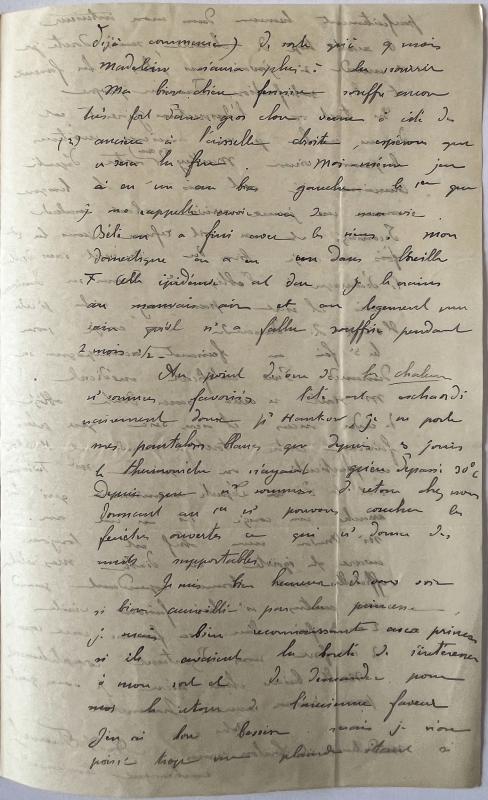 déjà commencé) de sorte qu'à 9 mois
Madeleine n'aura plus à la nourrir
Ma bien chère femme souffre encore
très fort d'un gros clou venu à côté de
ancien à l'aisselle droite, espérons que
ce sera la fin. Moi-même j'en
ai eu un au bras gauche le 1er que
je me rappelle avoir eu de ma vie
Bébé en a fini avec les siens. mon
domestique en a eu un dans l'oreille
Cette épidémie est due je le crains
au mauvais air et au logement
qu'il n's a fallu souffrir pendant
2 mois 1/2 -
Au point de vue de la chaleur
n's sommes favorisés l'été est
doux pr Hankow je ne porte
mes pantalons blancs que depuis 3 jours
le thermomètre n'ayant guère dépassé 30°c
Depuis que n's sommes de retour chez nous
donnant au n's pouvons coucher les
fenêtres ouvertes ce qui n's donne des
nuits supportables.
Je suis bien heureux de vous voir
si bien accueilli par les princesse
je serais bien reconnaissant aux princes
si ils avaient la bonté de s'intéresser
à mon sort et de demander pour
nous le retour de l'ancienne faveur
J'en ai bon besoin mais je n'ose
pas trop me plaindre étant si